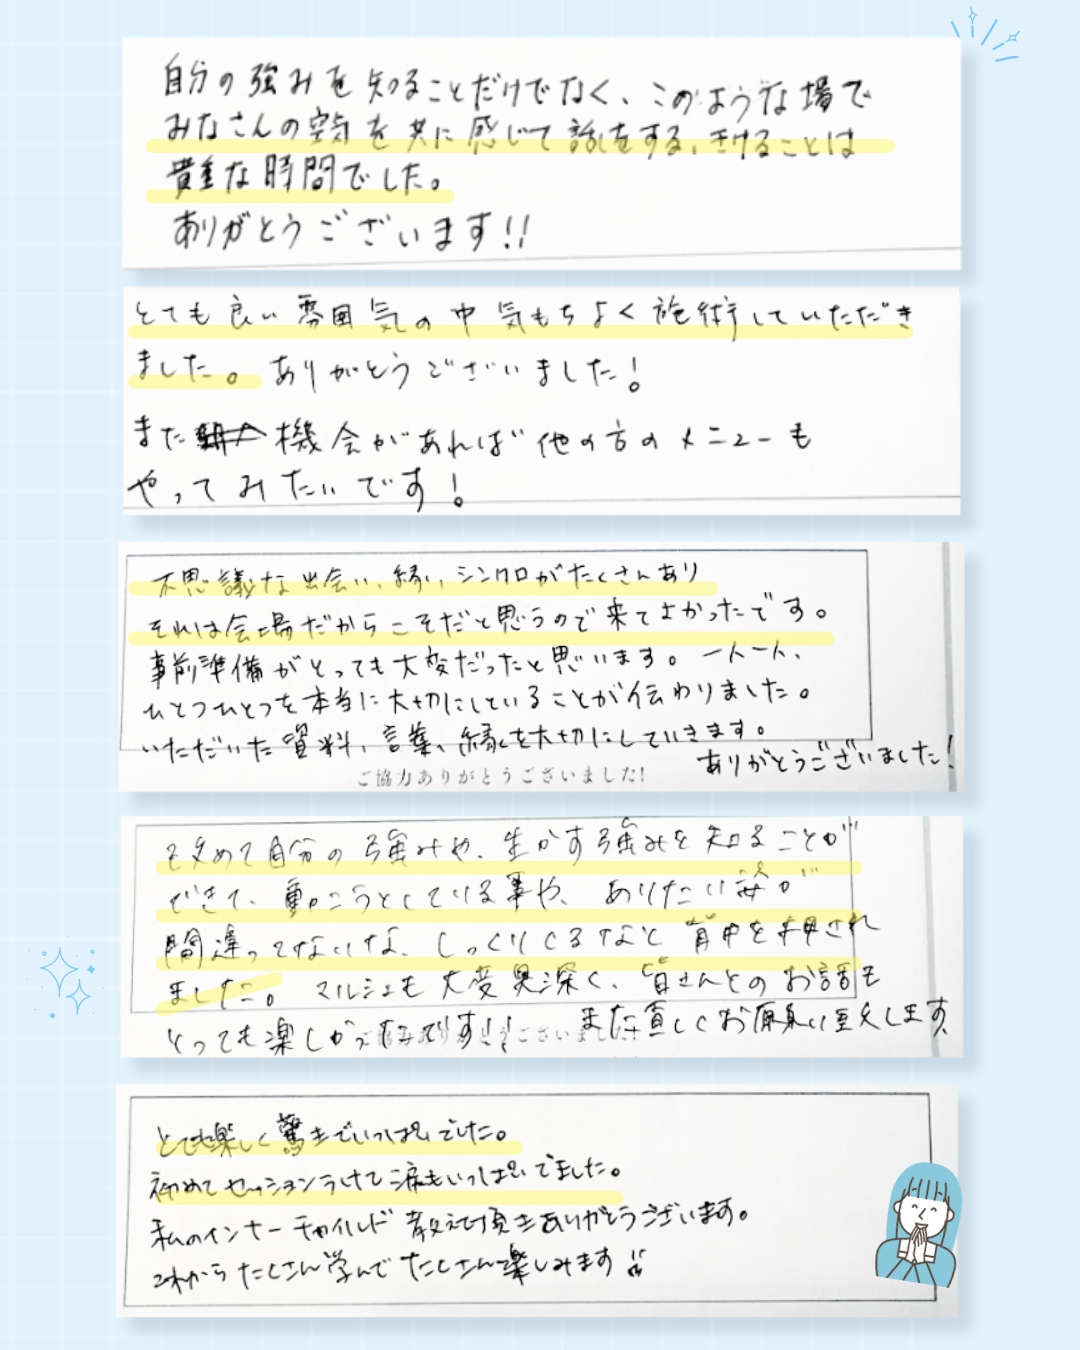 自分の強みを知ることだけでなく、このような場で
みなさんの空気を共に感じて話をする、きけることは
貴重な時間でした。
ありがとうございます!!
とても良い雰囲気の中気もちよく施術していただき
ました。ありがとうございました!
また機会があれば他の方のメニューも
やってみたいです!
不思議な出会い、縁、シンクロがたくさんあり
それは会場だからこそだと思うので来てよかったです。
事前準備がとっても大変だったと思います。一人一人、
ひとつひとつを本当に大切にしていることが伝わりました。
いただいた資料、言葉、縁を大切にしていきます。
ありがとうございました!
ご協力ありがとうございました!
改めて自分の強みや、生かす強みを知ることが
できて、動こうとしている事や、ありたい姿が
間違ってないな、しっくりくるなと背中を押され
ました。マルシェも大変奥深く、皆さんとのお話も
とっても楽しかったです!!
また宜しくお願い致します。
とても楽しく驚きでいっぱいでした。
初めてセッションうけて涙もいっぱいでました。
私のインナーチャイルド教えて頂きありがとうございます。
これからたくさん学んでたくさん楽しみます!!